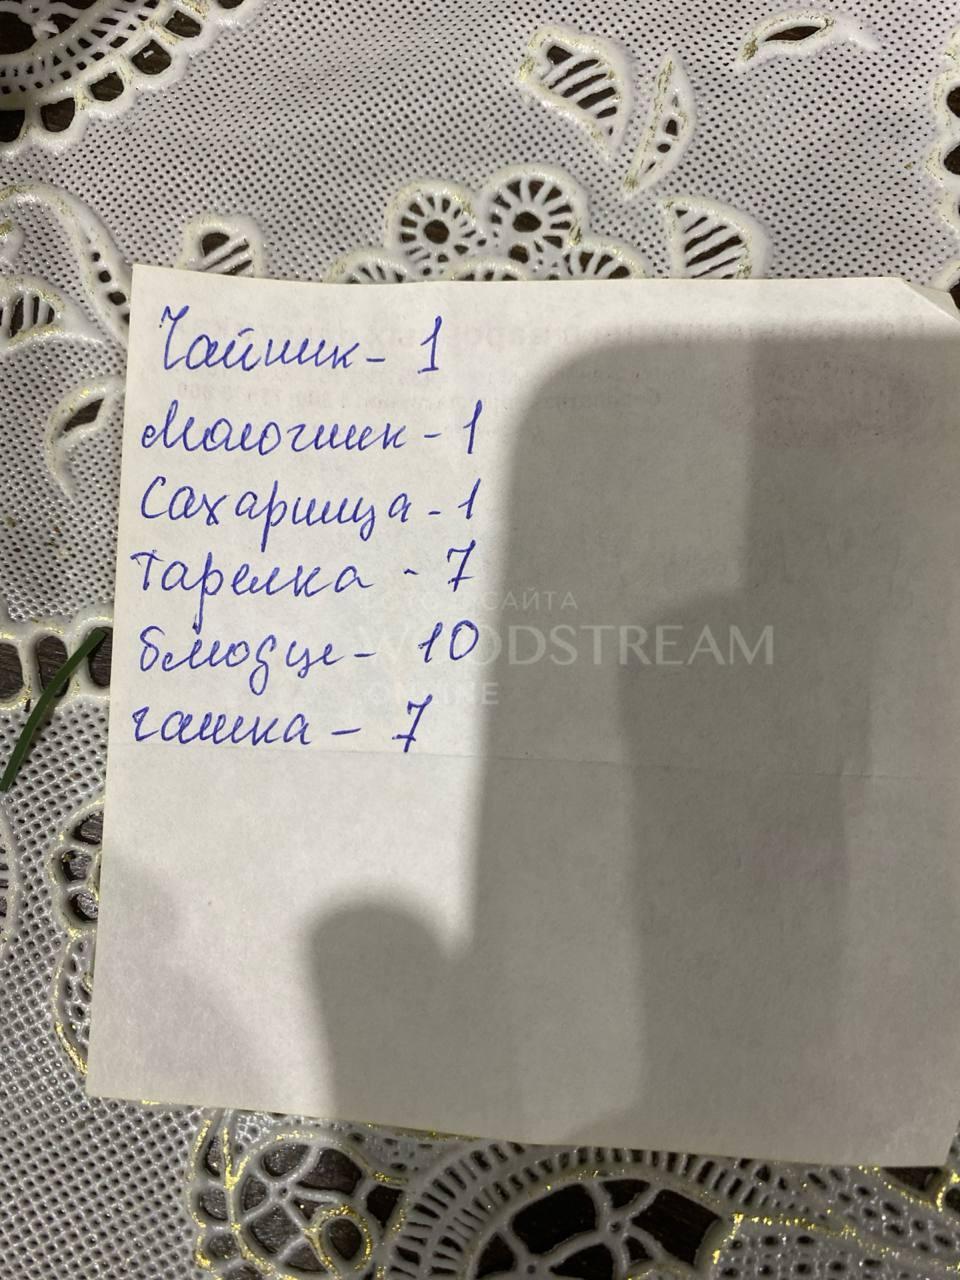 Чайник - 1
Молочник - 1
Сахарница - 1
Тарелка - 7
блюдце - 10
чашка - 7
САЙТА
WOODSTREAM
ONLINE